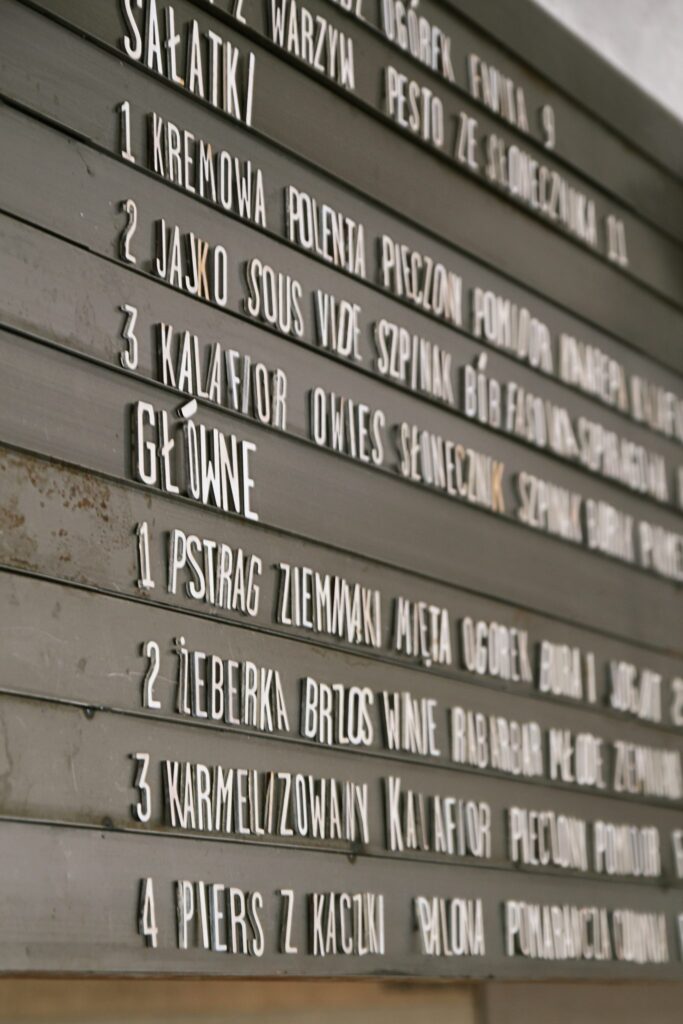 OGÓREK FRYTA 9
Z WARZYW PESTO ZE SŁONECZNIKA 11
SAŁATKI
1 KREMOWA POLENTA PIECZONY POMIDOR
2 JAJKO SOUS VIDE SZPINAK BÓB FASOLKA SZPARAGOWA
3 KALAFIOR OWIES SŁONECZNIK SZPINAK BURAK
GŁÓWNE
1 PSTRĄG ZIEMNIAKI MIĘTA OGOREK BURAK JOGURT 2
2 ŻEBERKA BRZOS WINIE RABARBAR MŁODE ZIEMNIAKI
3 KARMELIZOWANY KALAFIOR PIECZONY POMIDOR
4 PIERS Z KACZKI PALONA POMARAŃCZA